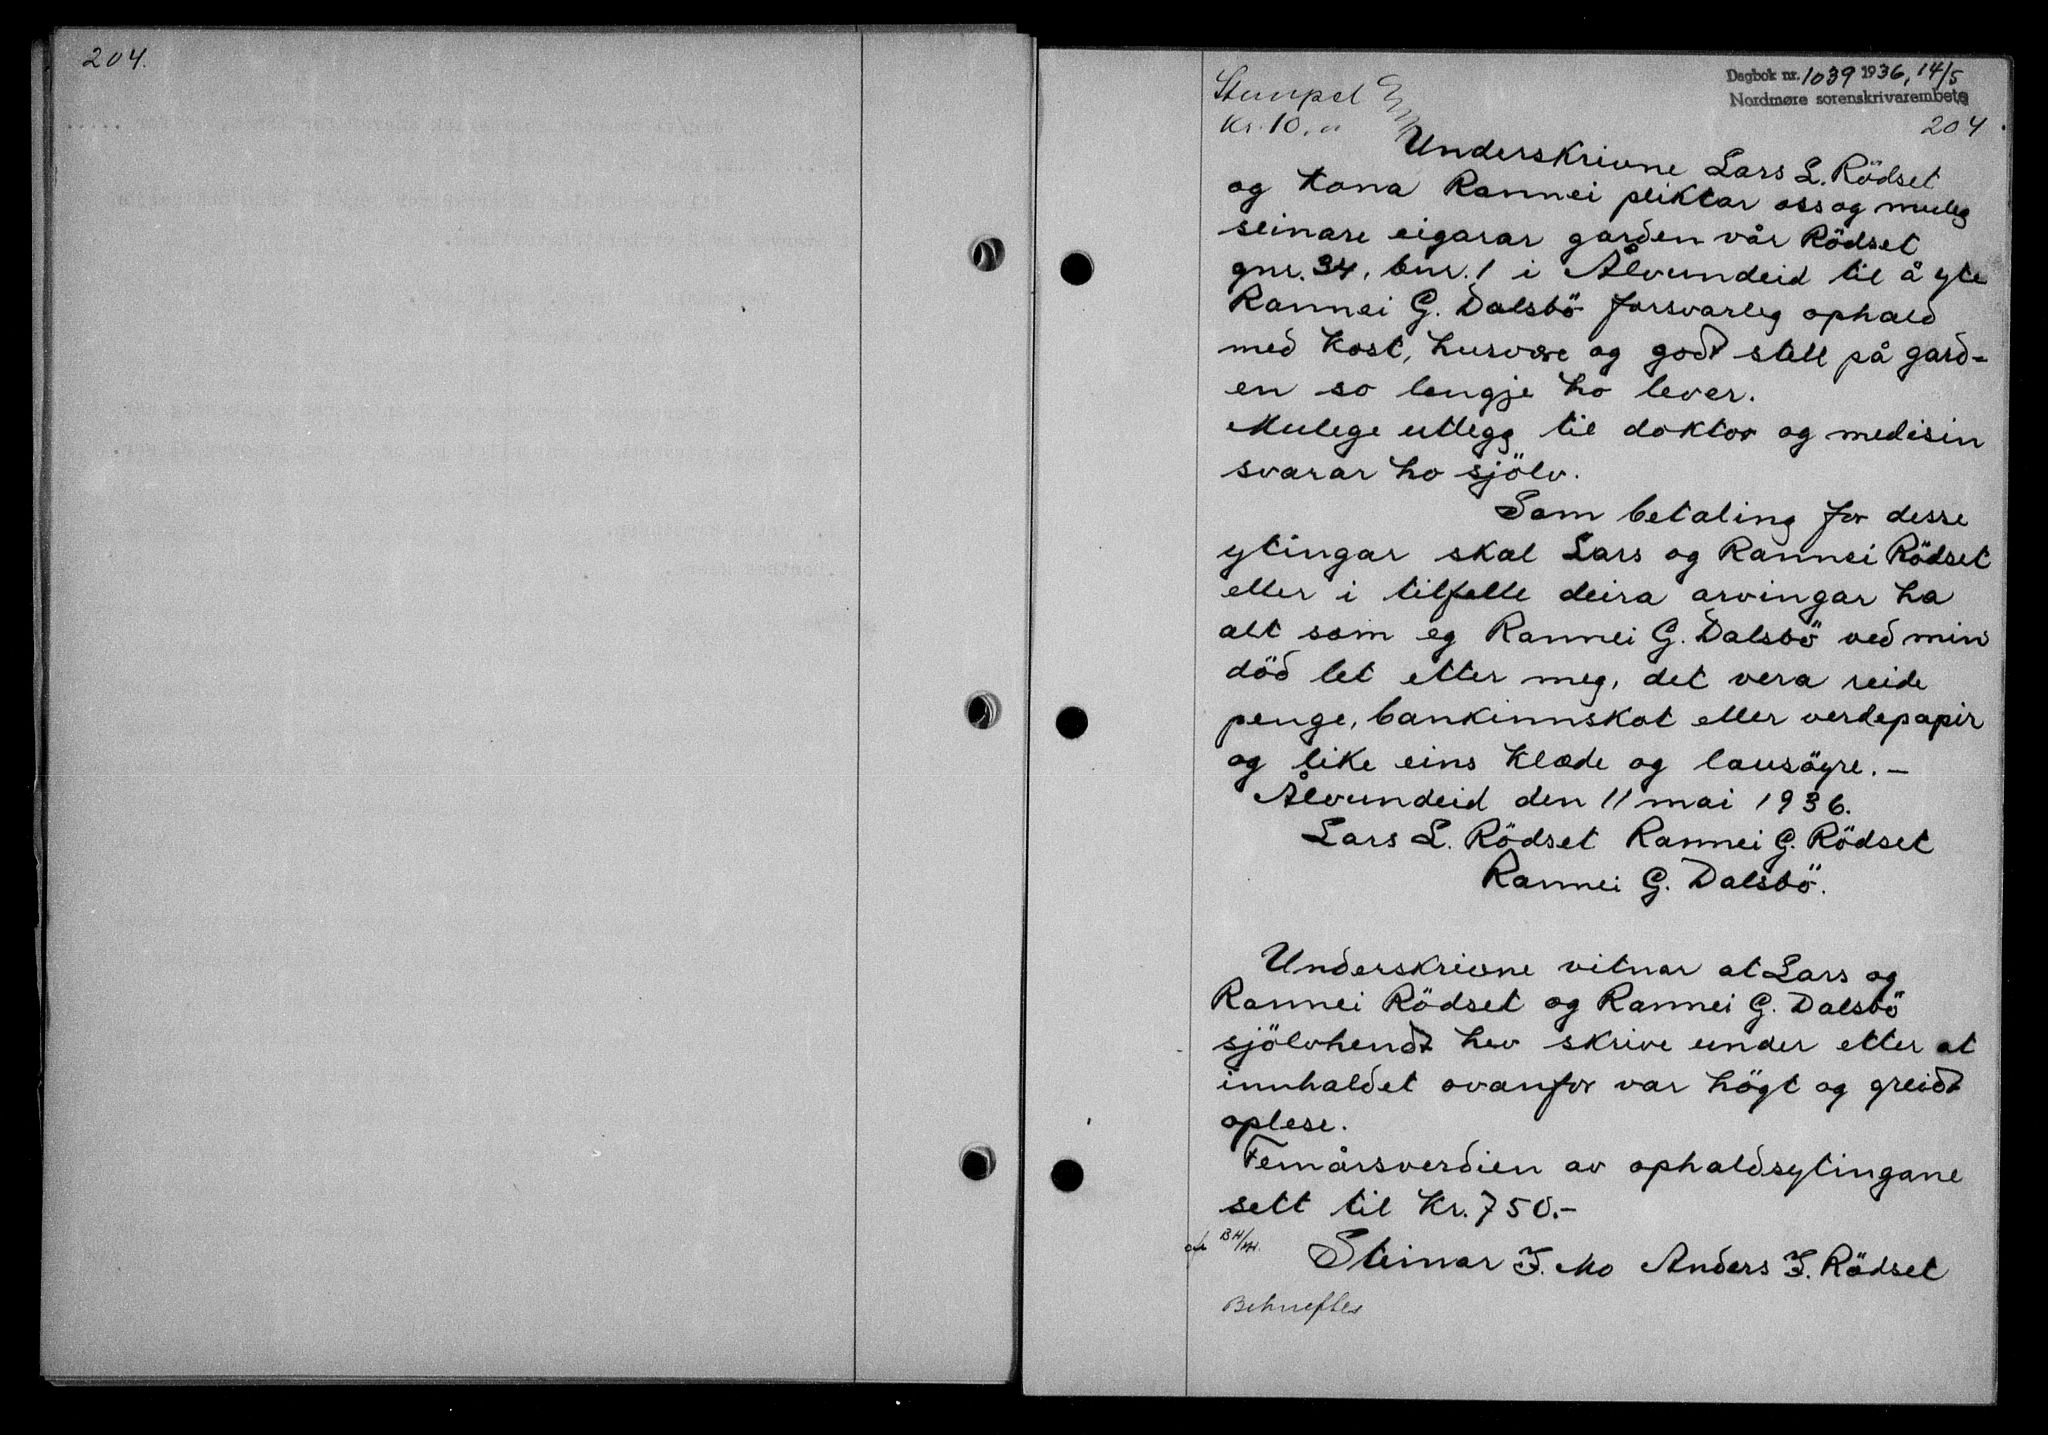 204.
Stempel
Kr. 10.00
Dagbok nr. 1039 1936, 14/5
Nordmøre sorenskrivarembete
204
Underskrivne Lars L. Rödset
og kona Rannei pliktar oss og muleg
seinare eigarar garden vår Rödset
gnr. 34, bnr. 1 i Ålvundeid til å yte
Rannei G. Dalsbö forsvarleg ophald
med kost, husvære og godt stell på gard-
en so lengje ho lever.
Mulege utlegg til doktor og medisin
svarar ho sjölv.
Som betaling for desse
ytingar skal Lars og Rannei Rödset
eller i tilfelle deira arvingar ha
alt som eg Rannei G. Dalsbö ved min
död let etter meg, det vera reide
penge, bankinnskot eller verdepapir
og like eins klæde og lausöyre. —
Ålvundeid den 11 mai 1936.
Lars L. Rödset Rannei G. Rödset
Rannei G. Dalsbö.
Underskrivne vitnar at Lars og
Rannei Rödset og Rannei G. Dalsbö
sjölvhendt hev skrive under etter at
innhaldet ovanfor var högt og greidt
oplese.
Femårsverdien av ophaldsytingane
sett til Kr. 750.-
BH/
Steinar I. Mo Anders I. Rödset
Bekreftes